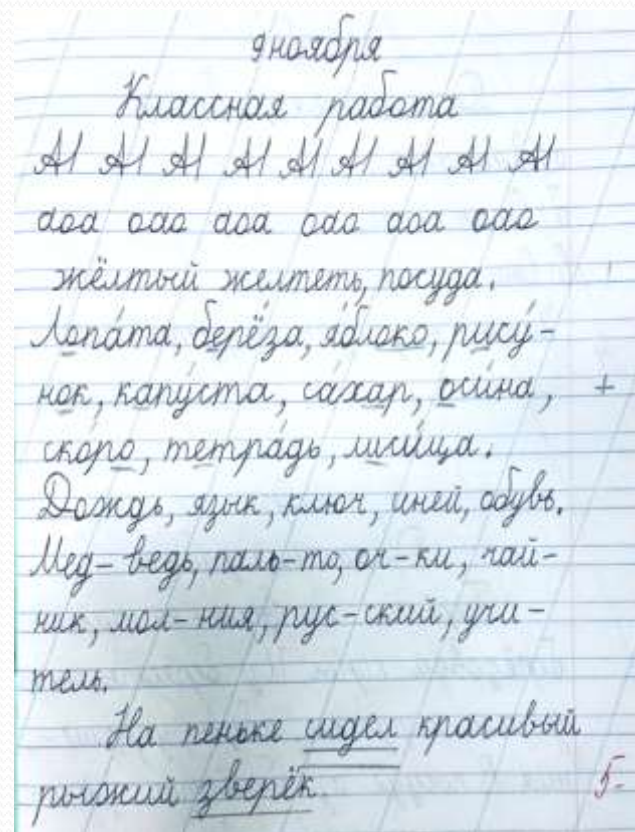 9 ноября
Классная работа
А1 А1 А1 А1 А1 А1 А1 А1 А1
аоа оао аоа оао аоа оао
жёлтый желтеть, посуда.
Лопа́та, берёза, я́блоко, рису́-
нок, капу́ста, са́хар, оси́на, +
ско́ро, тетра́дь, лиси́ца.
Дождь, язык, ключ, иней, обувь.
Мед-ведь, паль-то, оч-ки, чай-
ник, мол-ния, рус-ский, учи-
тель.
На пеньке сидел красивый
рыжий зверёк. 5-